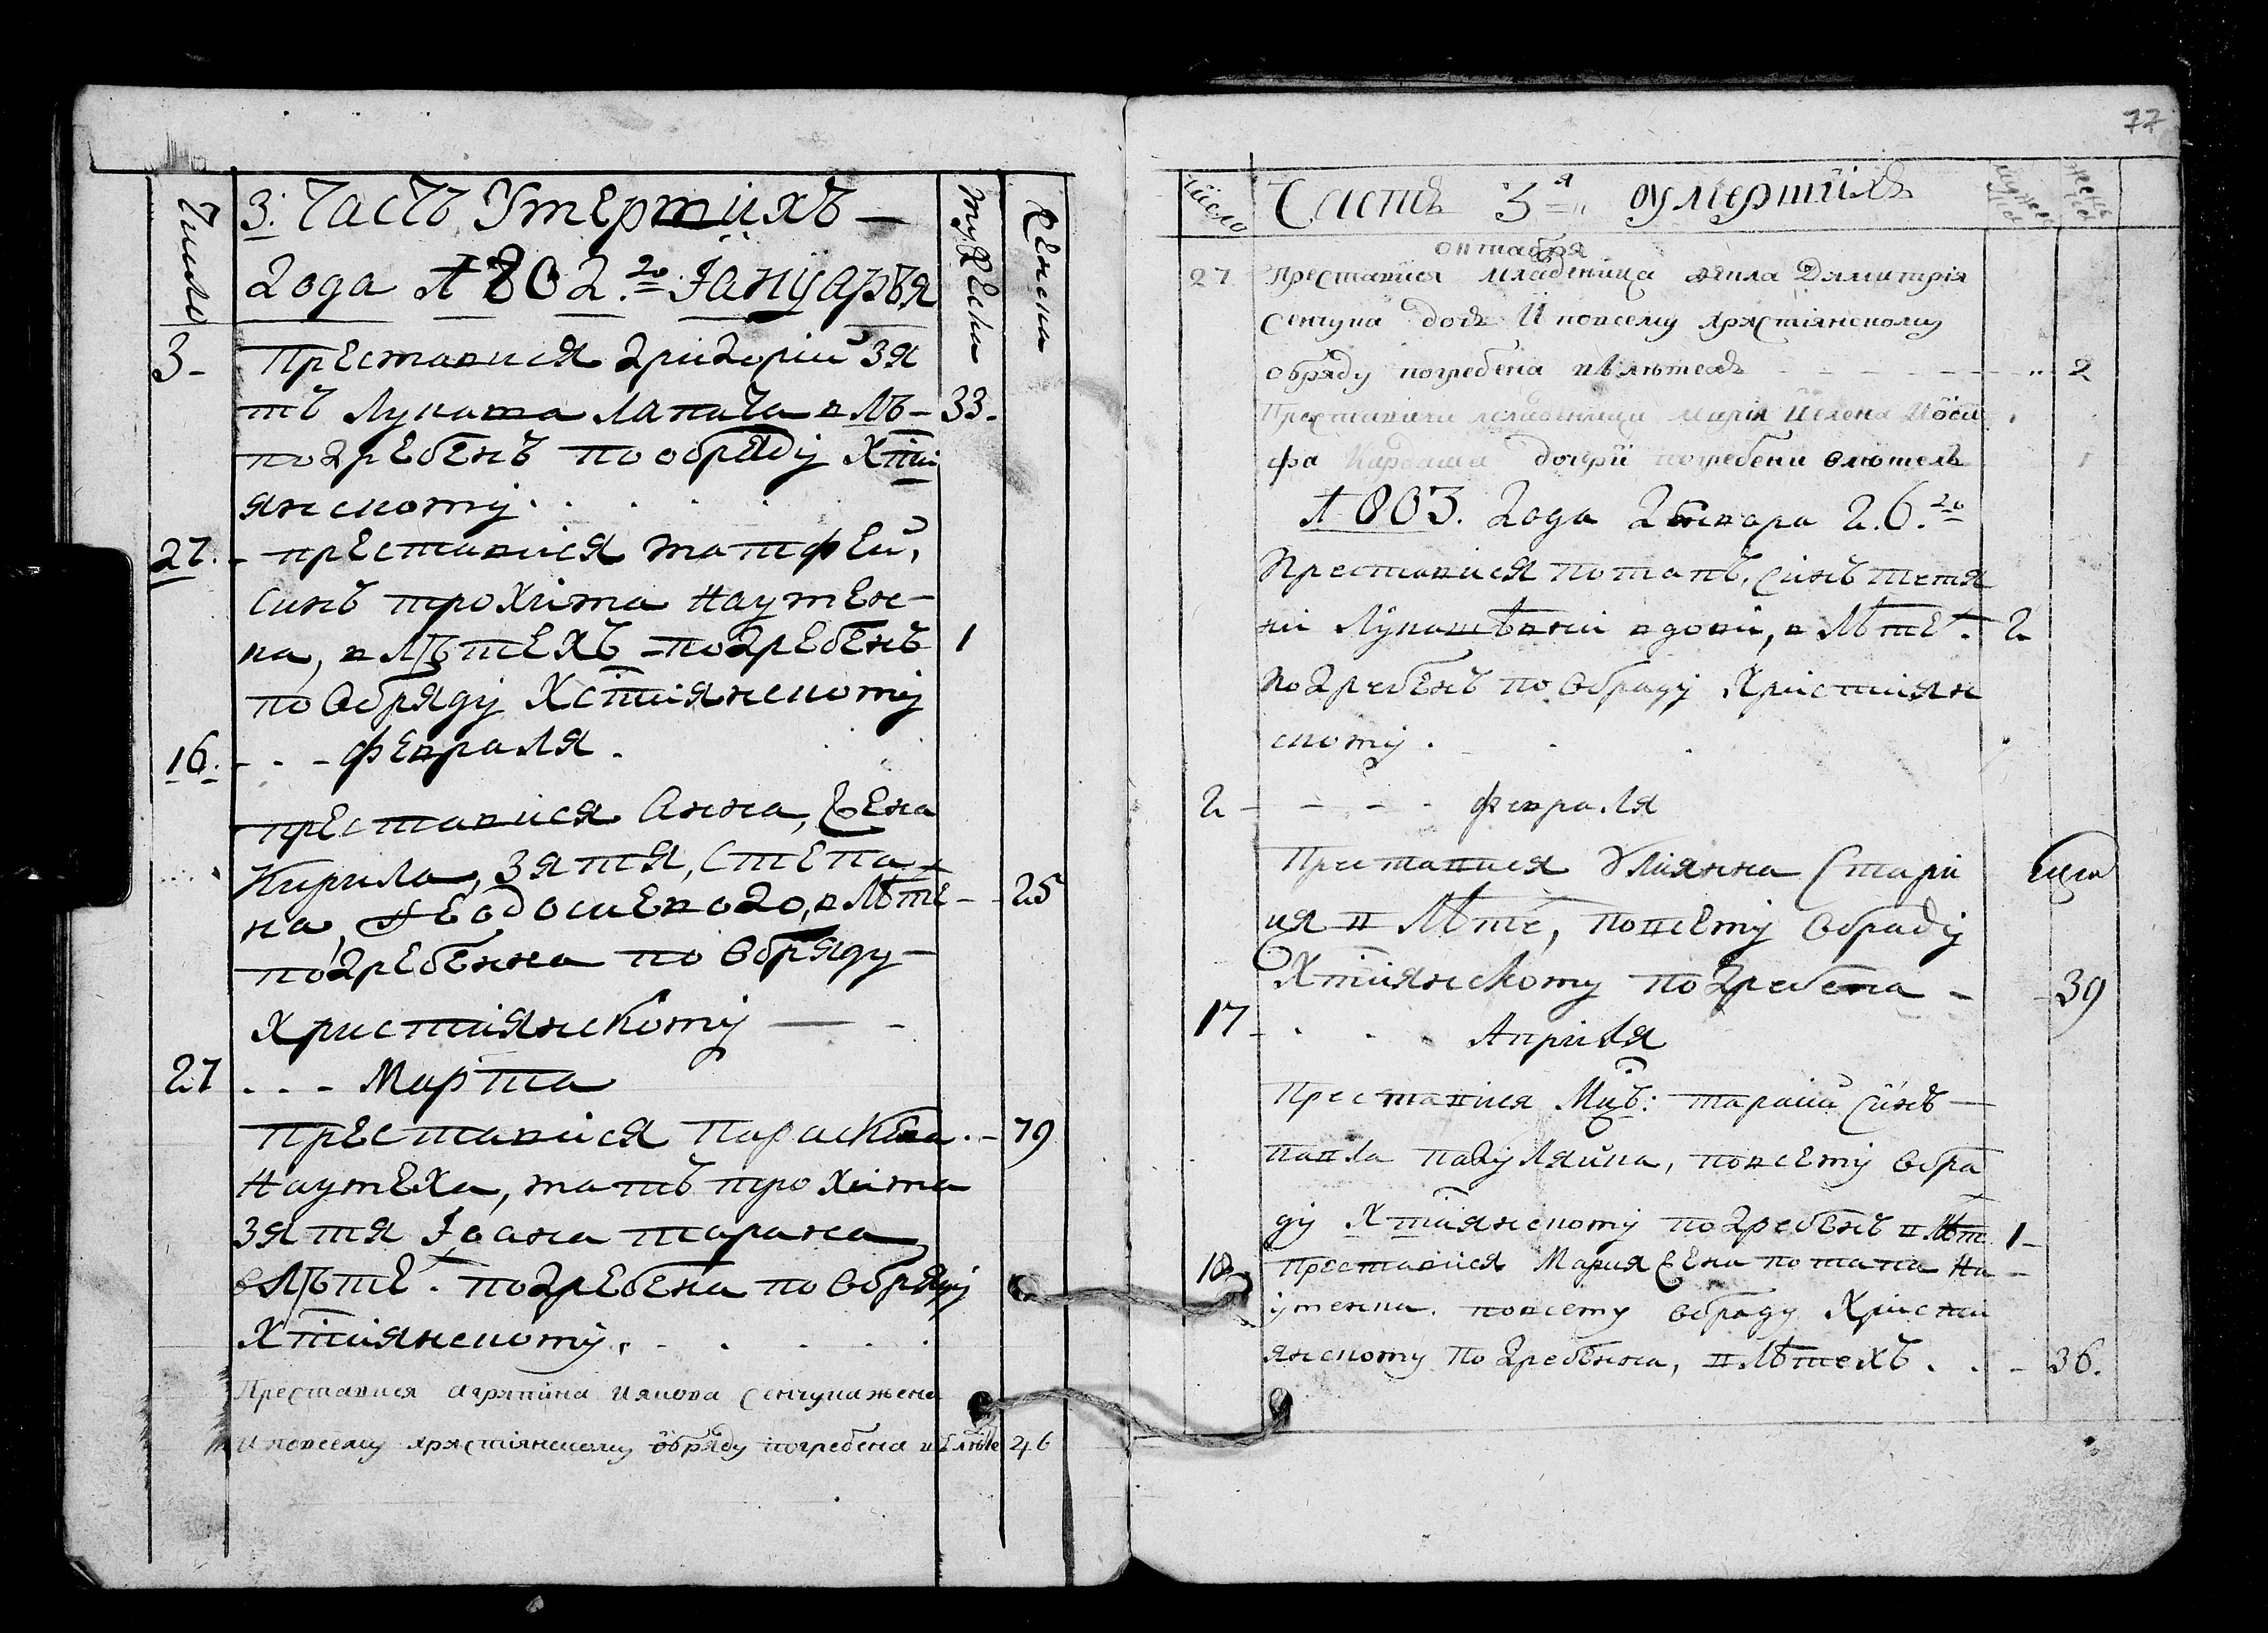 Число
3. Часть Умершихъ
Мужеска
Женска
года 1802.го Іануарья
3 - Преставися Григорій зя
ть Лукаша Лапача в Лѣ- 33.
погребенъ по обряду Хсти
янскому.
27. - преставися Матфей,
Синъ трохима Наумен-
ка, в лѣтехъ - погребенъ 1
по Обряду Хстіянскому
16. - - - февраля.
преставися Анна, Жена
Кирила, Зятя, Степа-
на, Феодосиевого, в Лѣте - - 25
погребенна по Обряду
Христіянскому - -
27 . . - Марта
преставися Параскева. - 79
Наумеха, мать трохима
зятя Іоана тарана
в Лѣте. погребена по Обряду
Хстіянскому.
Преставися Агрипина Иякова Сенчука жена
И повсему хрястіянскому обряду погребена в лѣте 46
77
Число
Часть 3я умершихъ
Мужеска
женска
октября
27. Преставися младеница Димитрія
Сенчука дочь И повсему хрястіянскому
обряду погребена влѣтехъ - - - - - „ 2
Преставися младеници Марія Йосі
фа Кардаша дочери погребени
1803. года Генвара 26.го
Преставися потапъ, Синъ
Лукашѣвни вдови, в Лѣте. 2
Погребенъ по Обряду Христіян
скому.
2 - - - - февраля
Преставися Улиянна Стари
ця в Лѣте, повсему Обряду
Хстіянскому погребена - - 39
17 - . . . Априля
Преставися Мцъ: тарасій Синъ
павла, повсему Обра
ду Хстіянскому погребенъ в Лѣт 1 -
18. Преставися Мария Жена потапа На -
уменка. повсему обряду Христи
янскому погребенна, в Лѣтехъ . . - 36.